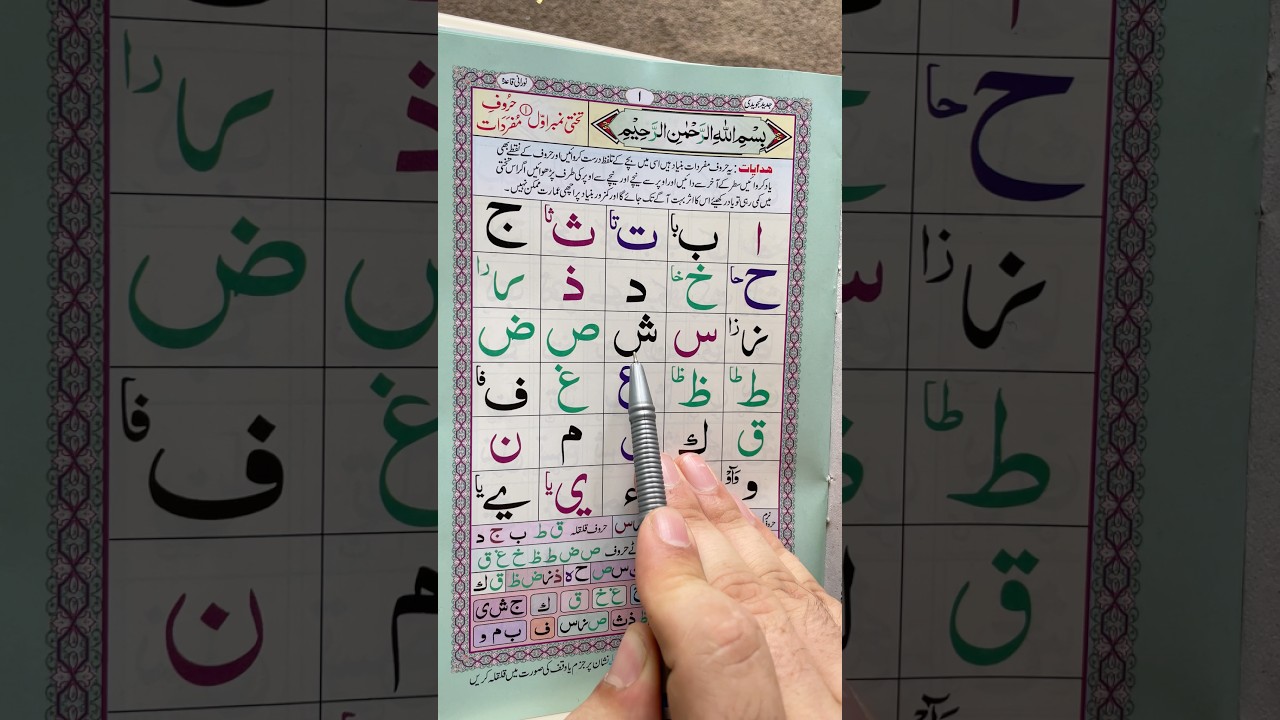 نورانی قاعدہ
۱
جدید تجویدی
بِسْمِ اللهِ الرَّحْمٰنِ الرَّحِيْمِ
تختی نمبر اوّل ① حُروف مُفرَدَات
ھدایات : یہ حروف مفردات بنیاد ہیں اسی میں بچے کے تلفظ درست کروائیں اور حروف کے نقطے بھی
یاد کروائیں سطر کے آخر سے دائیں اور اوپر سے نیچے اور نیچے سے اوپر کی طرف پڑھوائیں اگر اس تختی
میں کمی رہی تو یاد رکھیئے اس کا اثر بہت آگے تک جائے گا اور کمزور بنیاد پر اچھی عمارت ممکن نہیں۔
ا ب با ت تا ث ثا ج
ح حا خ خا د ذ ر را
ز زا س ش ص ض
ط طا ظ ظا ع غ ف فا
ق ك م ن
و وَآوْ ء ي يا ے يا
حروف قلقلہ ق ط ب ج د
حروف ص ض ط ظ خ غ ق
س ص ح ہ ذ ز ظ ض ق ك
غ خ ق ك ج ش ی
ذ ث ص ز س ف ب م و
نشان پر جزم یا وقف کی صورت میں قلقلہ کریں